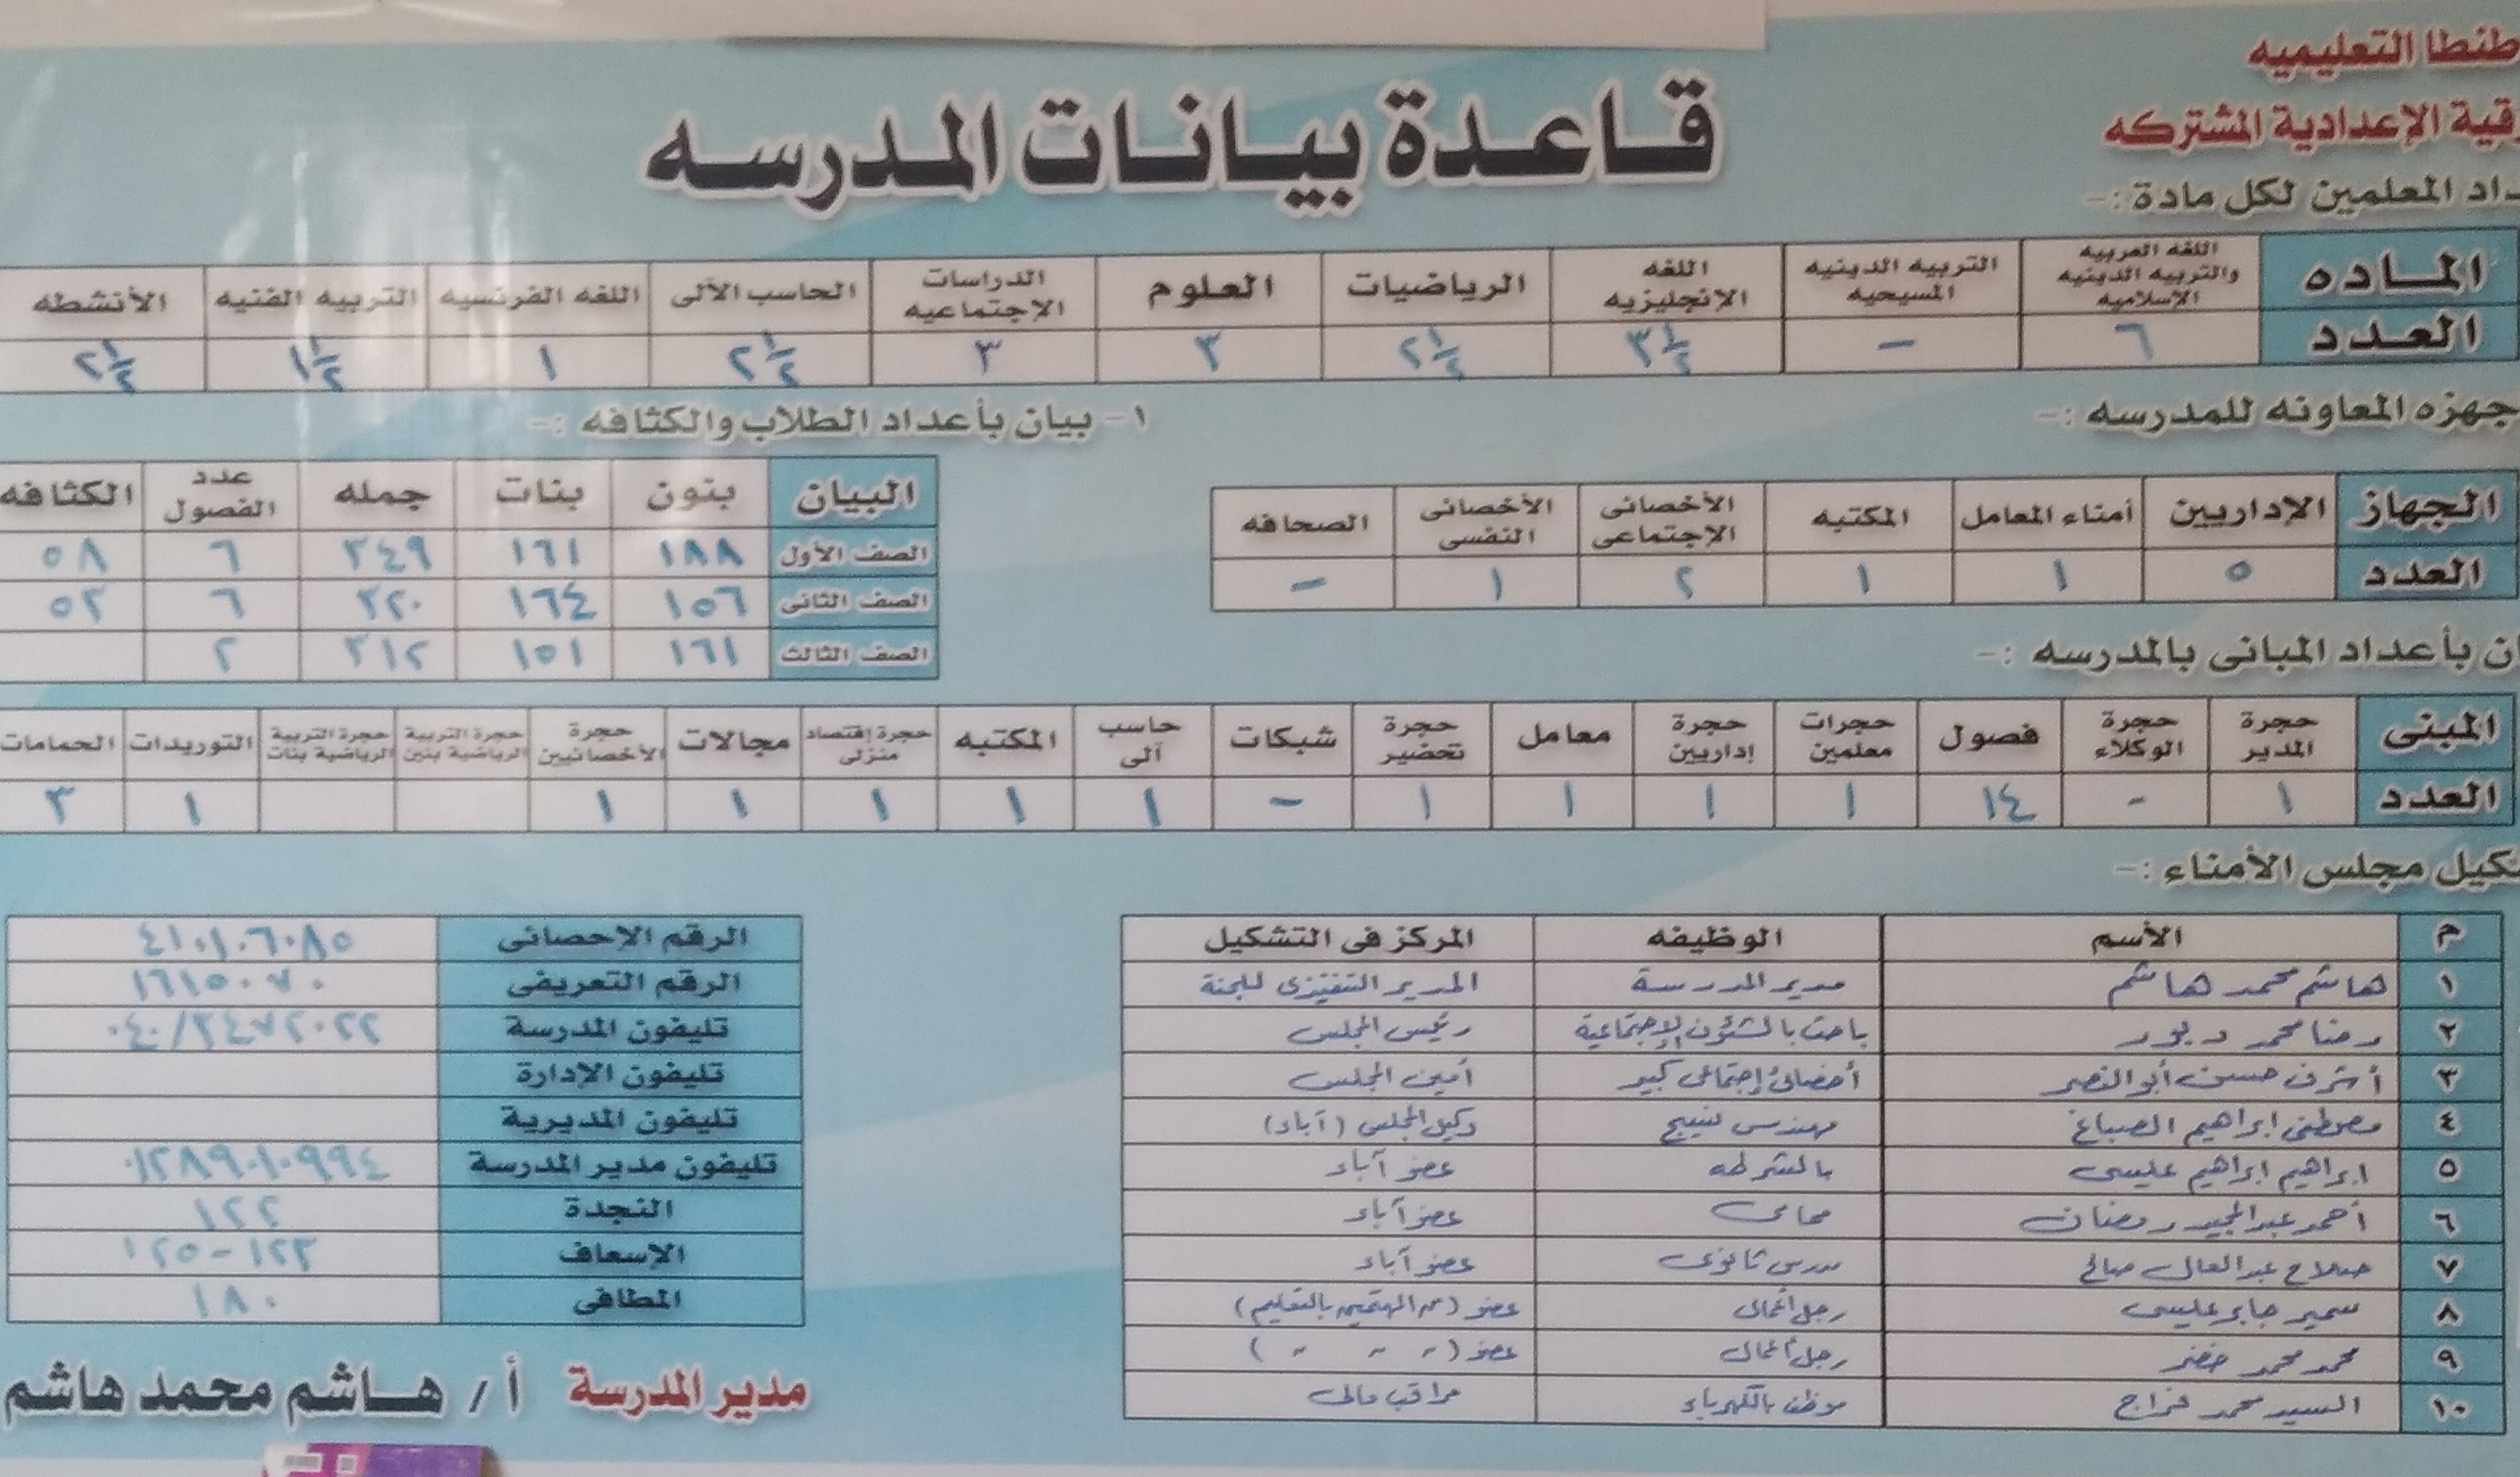 طنطا التعليميه
قاعدة بيانات المدرسه
الإعدادية المشتركه
المعلمين لكل مادة :-
الماده | اللغه العربيه والتربيه الدينيه الاسلاميه | التربيه الدينيه المسيحيه | اللغه الانجليزيه | الرياضيات | العلوم | الدراسات الاجتماعيه | الحاسب الآلى | اللغه الفرنسيه | التربيه الفنيه | الأنشطه
العدد | ٦ | - | ٣ ١/٢ | ٢ ١/٢ | ٣ | ٣ | ٢ ١/٢ | ١ | ١ ١/٢ | ٢ ١/٢
المعاونه للمدرسه :-
الجهاز | الاداريين | أمناء المعامل | المكتبه | الأخصائى الاجتماعى | الأخصائى النفسى | الصحافه
العدد | ٥ | ١ | ١ | ٢ | ١ | -
١- بيان باعداد الطلاب والكثافه :-
البيان | بنون | بنات | جمله | عدد الفصول | الكثافه
الصف الأول | ١٨٨ | ١٦١ | ٣٤٩ | ٦ | ٥٨
الصف الثانى | ١٥٦ | ١٦٤ | ٣٢٠ | ٦ | ٥٣
الصف الثالث | ١٦١ | ١٥١ | ٣١٢ | ٢
بأعداد المبانى بالمدرسه :-
المبنى | حجرة المدير | حجرة الوكلاء | فصول | حجرات معلمين | حجرة إداريين | معامل | حجرة تحضير | شبكات | حاسب آلى | المكتبه | حجرة إقتصاد منزلى | مجالات | حجرة الأخصائيين | حجرة التربية الرياضية بنين | حجرة التربية الرياضية بنات | التوريدات | الحمامات
العدد | ١ | - | ١٤ | ١ | ١ | ١ | ١ | - | ١ | ١ | ١ | ١ | ١ | ١ | ٣
مجلس الأمناء :-
م | الأسم | الوظيفه | المركز فى التشكيل
١ | هاشم محمد هاشم | مدير المدرسة | المدير التنفيذى للجنة
٢ | رضا محمد | باحث بالشئون الاجتماعية | رئيس المجلس
٣ | أشرف حسن أبو النصر | أخصائى إجتماعى كبير | أمين المجلس
٤ | مصطفى ابراهيم الصباغ | مهندس نسيج | وكيل المجلس (آباء)
٥ | ابراهيم ابراهيم عليسى | بالشرطه | عضو آباء
٦ | أحمد عبد المجيد رمضان | محامى | عضو آباء
٧ | صلاح عبد العال صالح | مدرس ثانوى | عضو آباء
٨ | سمير جابر عليسى | رجل أعمال | عضو (من المهتمين بالتعليم)
٩ | محمد محمد خضر | رجل أعمال | عضو ( " " " )
١٠ | السيد محمد فراج | موظف بالكهرباء | مراقب مالى
الرقم الاحصائى | ٤١٠١٠٦٠٨٥
الرقم التعريفى | ١٦١٥٠٧٠
تليفون المدرسة | ٠٤٠/٣٤٧٢٠٢٢
تليفون الإدارة
تليفون المديرية
تليفون مدير المدرسة | ٠١٢٨٩٦٠١٠٩٩٤
النجدة | ١٢٢
الإسعاف | ١٢٣-١٢٥
المطافى | ١٨٠
مدير المدرسة
أ / هاشم محمد هاشم